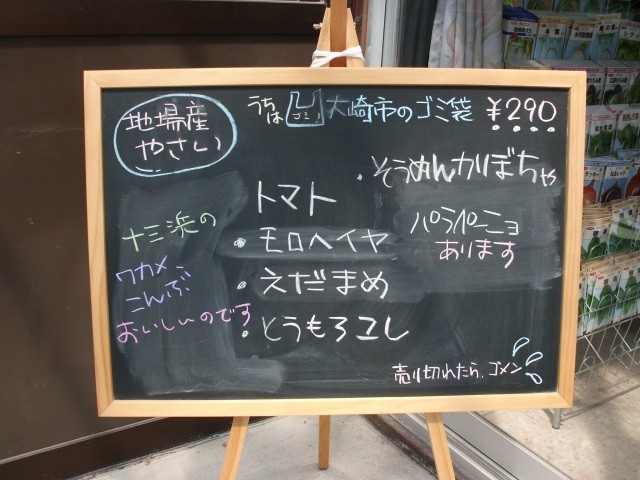 地場産
やさい
うちは ゴミ 大崎市のゴミ袋 ¥290
・そうめんかぼちゃ
トマト
・モロヘイヤ
・えだまめ
・とうもろコし
ハラペーニョ
あります
十三浜の
ワカメ
こんぶ
おいしいのです
売り切れたら、ゴメン